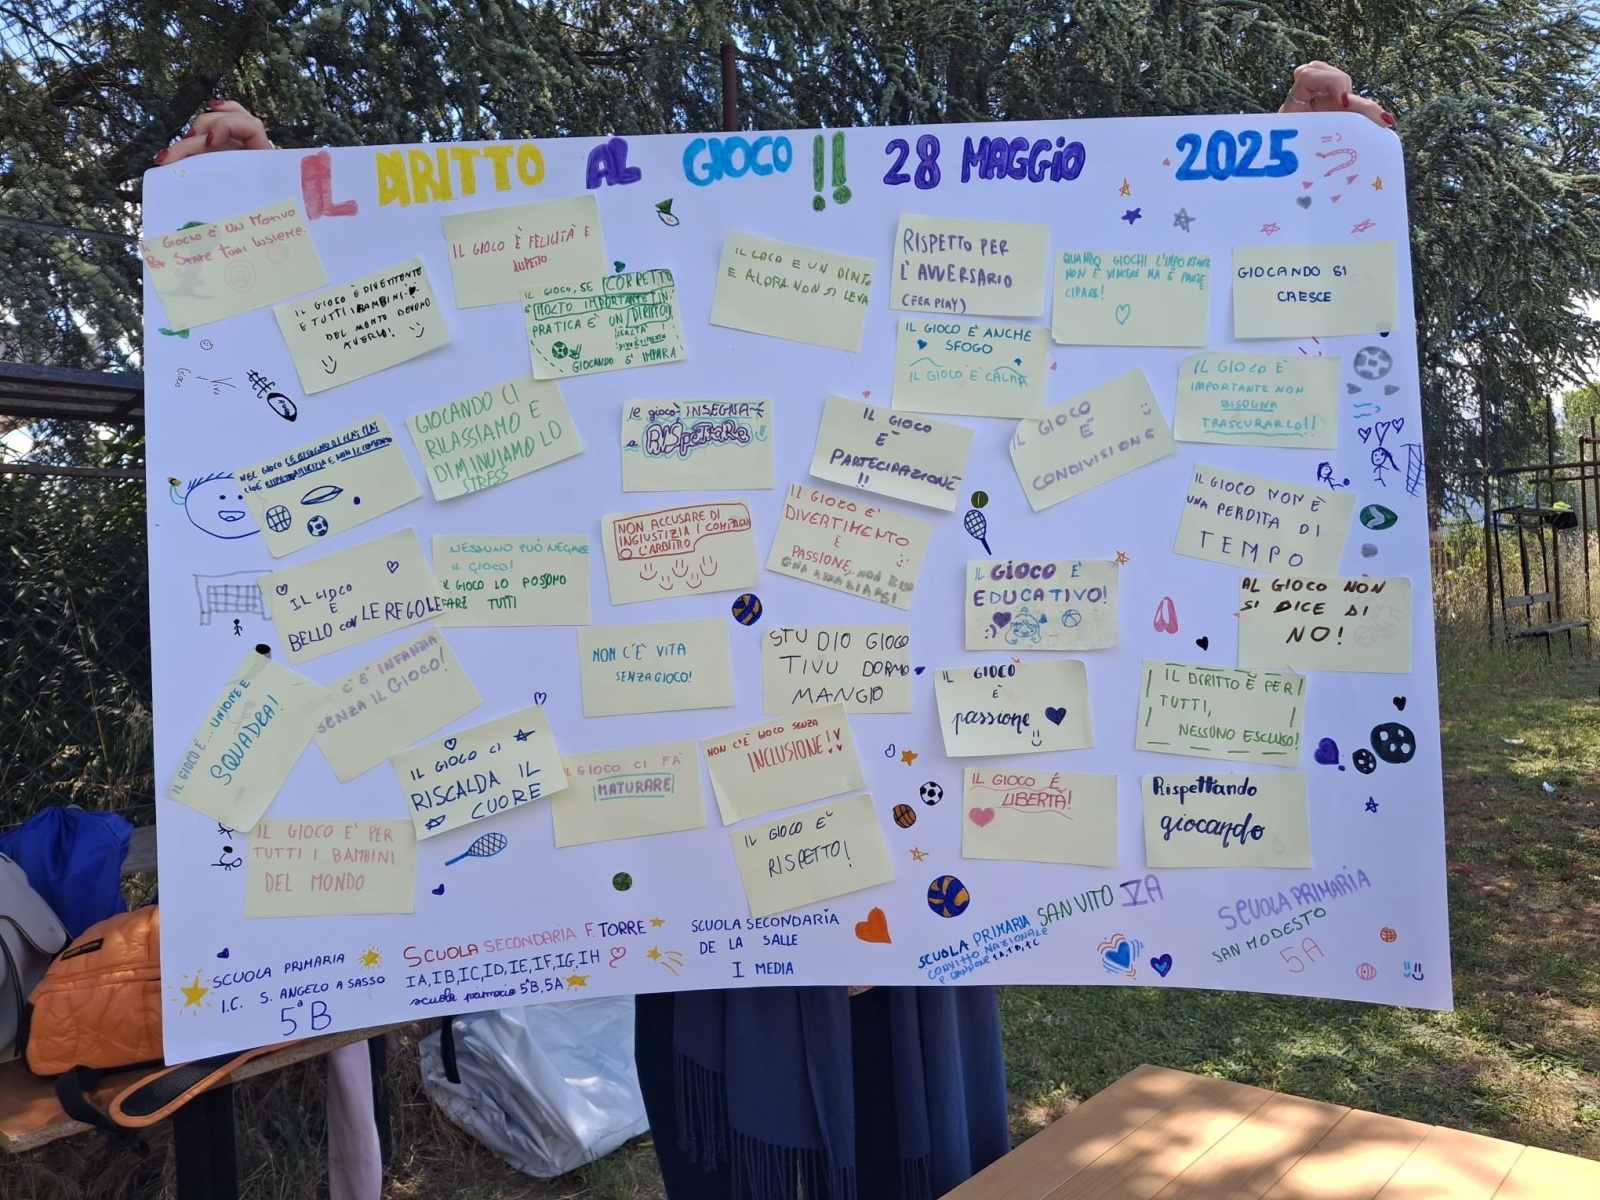 IL DIRITTO AL GIOCO!! 28 MAGGIO 2025
IL GIOCHO E' UN MOTIVO
PER STARE TUTTI INSIEME.
IL GIOCO È DIVERTENTE
E TUTTI I BAMBINI
DEL MONTO DEVONO
AVERLO!
IL GIOCO È FELICITÀ E
RISPETTO
IL GIOCO, SE CORRETTO
È MOLTO IMPORTANTE IN
PRATICA È UN DIRITTO!
LEALTÀ!
DIVERTIMENTO
GIOCANDO SI IMPARA
IL GIOCO E UN DIRITO
E ALORA NON SI LEVA
RISPETTO PER
L'AVVERSARIO
(FER PLAY)
QUANDO GIOCHI L'IMPORTANTE
NON È VINCERE MA È PARTE
CIPARE!
GIOCANDO SI
CRESCE
IL GIOCO È ANCHE
SFOGO
IL GIOCO È CALMA
IL GIOCO È
IMPORTANTE NON
BISOGNA
TRASCURARLO!!
NEL GIOCO
GIOCANDO CI
RILASSIAMO E
DIMINUIAMO LO
STRESS
le gioco INSEGNA
a RISPETTARE
IL GIOCO
E'
PARTECIPAZIONE
!!
IL GIOCO
È
CONDIVISIONE
IL GIOCO NON È
UNA PERDITA DI
TEMPO
IL GIOCO
È
BELLO con LE REGOLE
NESSUNO PUÓ NEGARE
IL GIOCO!
IL GIOCO LO POSSONO
FARE TUTTI
NON ACCUSARE DI
INGIUSTIZIA I COMPAGNI
O L'ARBITRO
IL GIOCO E'
DIVERTIMENTO
E
PASSIONE, NON BISO
GNA ARRABIARSI
IL GIOCO È
EDUCATIVO!
AL GIOCO NON
SI DICE DI
NO!
IL GIOCO È... UNIONE E
SQUADRA!
NON C'È INFANZIA
SENZA IL GIOCO!
NON C'È VITA
SENZA GIOCO!
STUDIO GIOCO
TIVU DORMO
MANGIO
IL GIOCO
È
passione
IL DIRITTO È PER
TUTTI,
NESSUNO ESCLUSO!
IL GIOCO CI
RISCALDA IL
CUORE
IL GIOCO CI FÀ
MATURARE
NON C'È GIOCO SENZA
INCLUSIONE!
IL GIOCO È
LIBERTÀ!
Rispettando
giocando
IL GIOCO E' PER
TUTTI I BAMBINI
DEL MONDO
IL GIOCO E'
RISPETTO!
SCUOLA PRIMARIA
I.C. S. ANGELO A SASSO
5ª B
SCUOLA SECONDARIA F. TORRE
IA, IB, IC, ID, IE, IF, IG, IH
scuola primaria 5ªB, 5A
SCUOLA SECONDARIA
DE LA SALLE
I MEDIA
SCUOLA PRIMARIA SAN VITO VA
CONVITTO NAZIONALE
P. GIANNONE
SCUOLA PRIMARIA
SAN MODESTO
5A